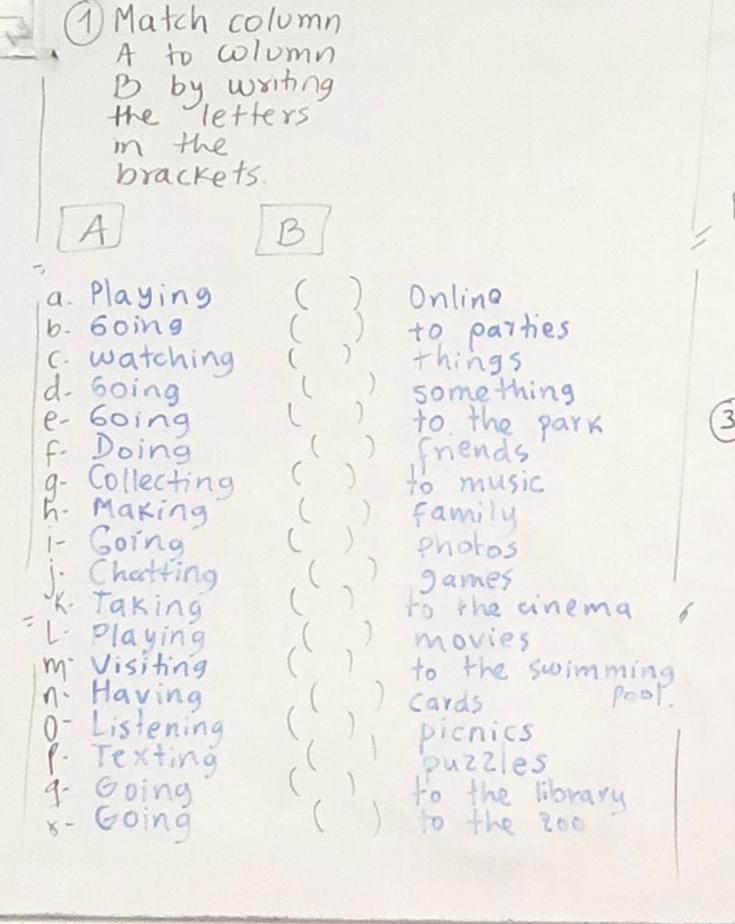 ① Match column
A to column
B by writing
the letters
in the
brackets.
A B
a. Playing ( ) Online
b- Going ( ) to parties
c. watching ( ) things
d- Going ( ) something
e- Going ( ) to the park
f- Doing ( ) friends
g- Collecting ( ) to music
h- Making ( ) family
i- Going ( ) photos
j. Chatting ( ) games
k. Taking ( ) to the cinema
L. Playing ( ) movies
m- Visiting ( ) to the swimming
pool.
n. Having ( ) cards
o- Listening ( ) picnics
p. Texting ( ) puzzles
q- Going ( ) to the library
r- Going ( ) to the zoo
③